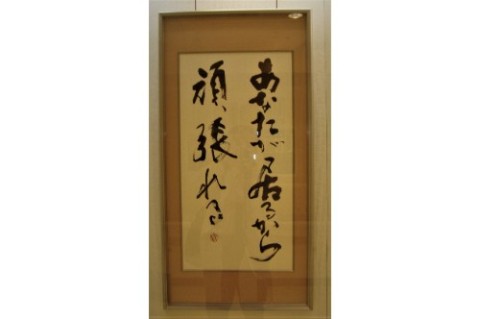 あなたが居るから
頑張れる